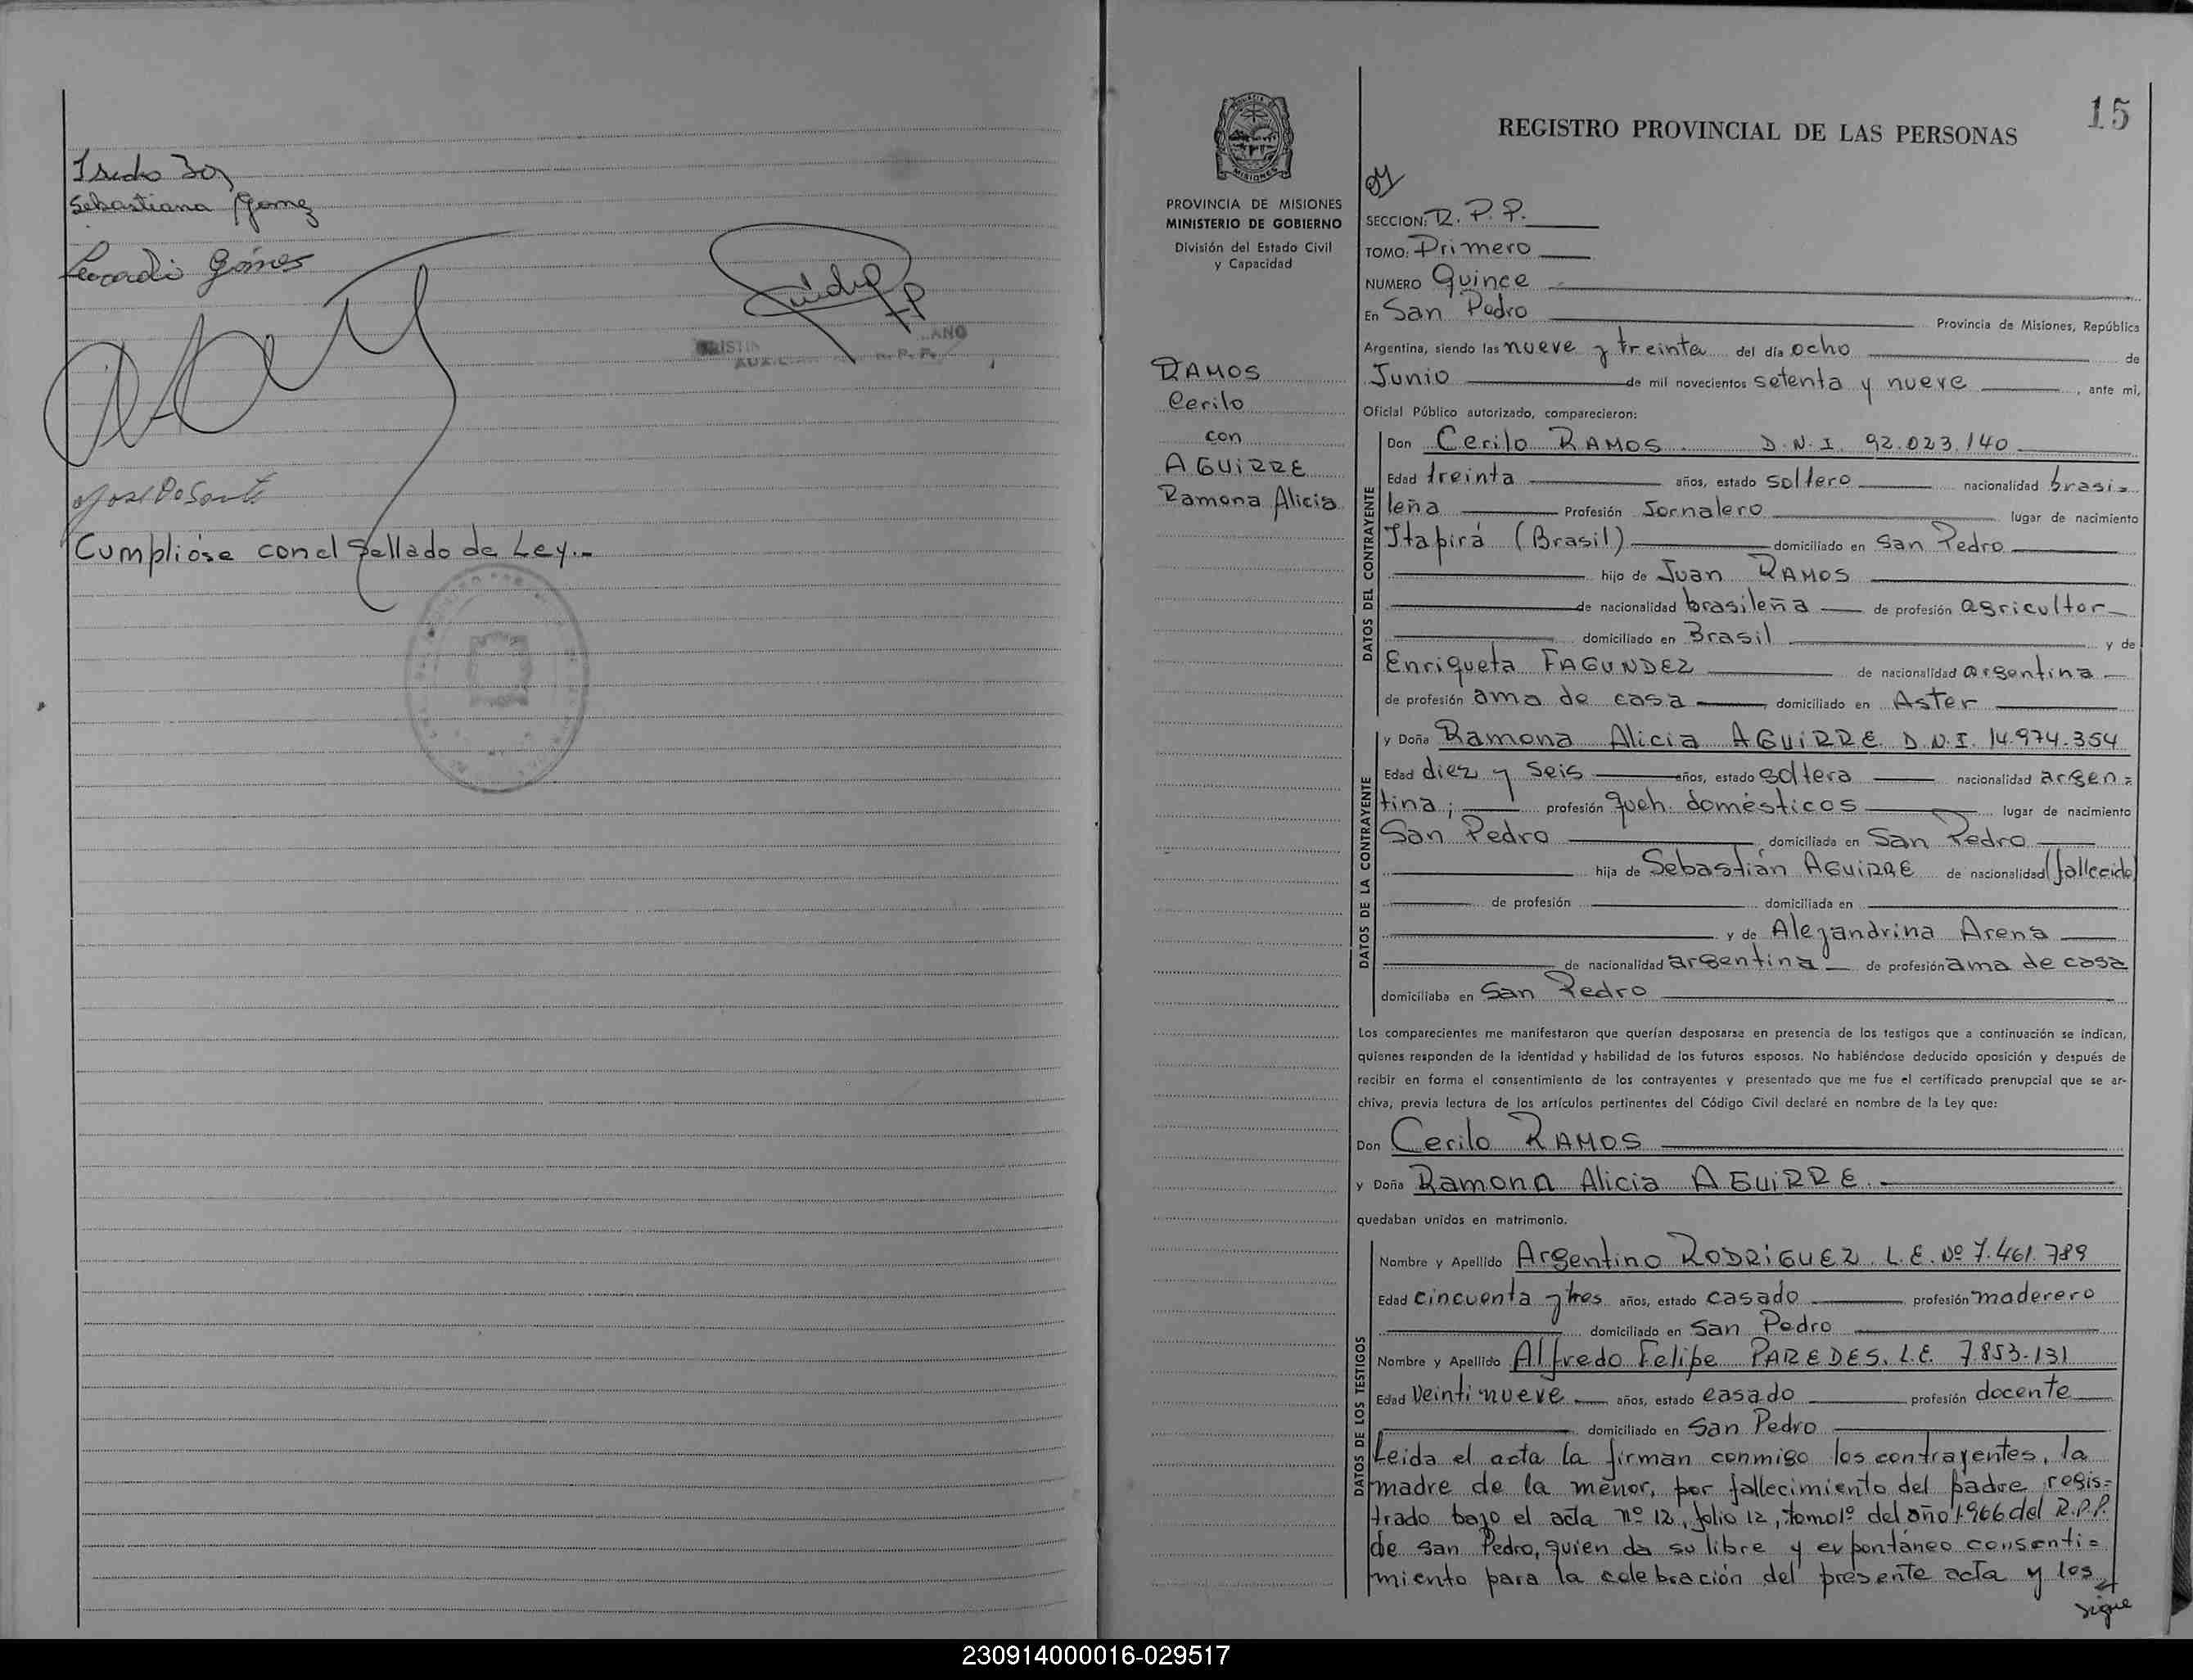 Sebastiana Gomez
Leocadio Gómes
José Do Sante
Cumplióse con el Sellado de Ley.-
15
REGISTRO PROVINCIAL DE LAS PERSONAS
PROVINCIA DE MISIONES
MINISTERIO DE GOBIERNO
División del Estado Civil
y Capacidad
RAMOS
Cerilo
con
AGUIRRE
Ramona Alicia
SECCION: R. P. P.
TOMO: Primero
NUMERO Quince
En San Pedro Provincia de Misiones, República
Argentina, siendo las nueve y treinta del día ocho de
Junio de mil novecientos setenta y nueve, ante mi,
Oficial Público autorizado, comparecieron:
DATOS DEL CONTRAYENTE
Don Cerilo RAMOS D.N.I. 92.023.140
Edad treinta años, estado soltero nacionalidad brasi=
leña Profesión Jornalero lugar de nacimiento
Itapirá (Brasil) domiciliado en San Pedro
hijo de Juan RAMOS
de nacionalidad brasileña de profesión agricultor
domiciliado en Brasil y de
Enriqueta FAGUNDEZ de nacionalidad argentina
de profesión ama de casa domiciliado en Aster
DATOS DE LA CONTRAYENTE
y Doña Ramona Alicia AGUIRRE D.N.I. 14.974.354
Edad diez y seis años, estado soltera nacionalidad argen=
tina; profesión queh. domésticos lugar de nacimiento
San Pedro domiciliada en San Pedro
hija de Sebastián AGUIRRE de nacionalidad (fallecido)
de profesión domiciliada en
y de Alejandrina Arena
de nacionalidad argentina de profesión ama de casa
domiciliaba en San Pedro
Los comparecientes me manifestaron que querían desposarse en presencia de los testigos que a continuación se indican,
quienes responden de la identidad y habilidad de los futuros esposos. No habiéndose deducido oposición y después de
recibir en forma el consentimiento de los contrayentes y presentado que me fue el certificado prenupcial que se ar-
chiva, previa lectura de los artículos pertinentes del Código Civil declaré en nombre de la Ley que:
Don Cerilo RAMOS
y Doña Ramona Alicia AGUIRRE.
quedaban unidos en matrimonio.
DATOS DE LOS TESTIGOS
Nombre y Apellido Argentino RODRIGUEZ L.E. Nº 7.461.789
Edad cincuenta y tres años, estado casado profesión maderero
domiciliado en San Pedro
Nombre y Apellido Alfredo Felipe PAREDES. L.E. 7.853.131
Edad Veintinueve años, estado casado profesión docente
domiciliado en San Pedro
Leida el acta la firman conmigo los contrayentes, la
madre de la menor, por fallecimiento del padre regis=
trado bajo el acta nº 12, folio 12, tomo 1º del año 1.966 del R.P.P.
de San Pedro, quien da su libre y expontáneo consenti=
miento para la celebración del presente acta y los
sigue
230914000016-029517